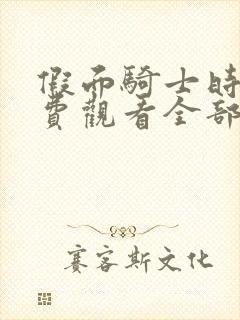 假而騎士時
費觀看全部
賽客斯文化